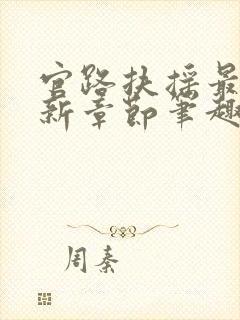 官路扶摇最
新章节笔趣
周秦